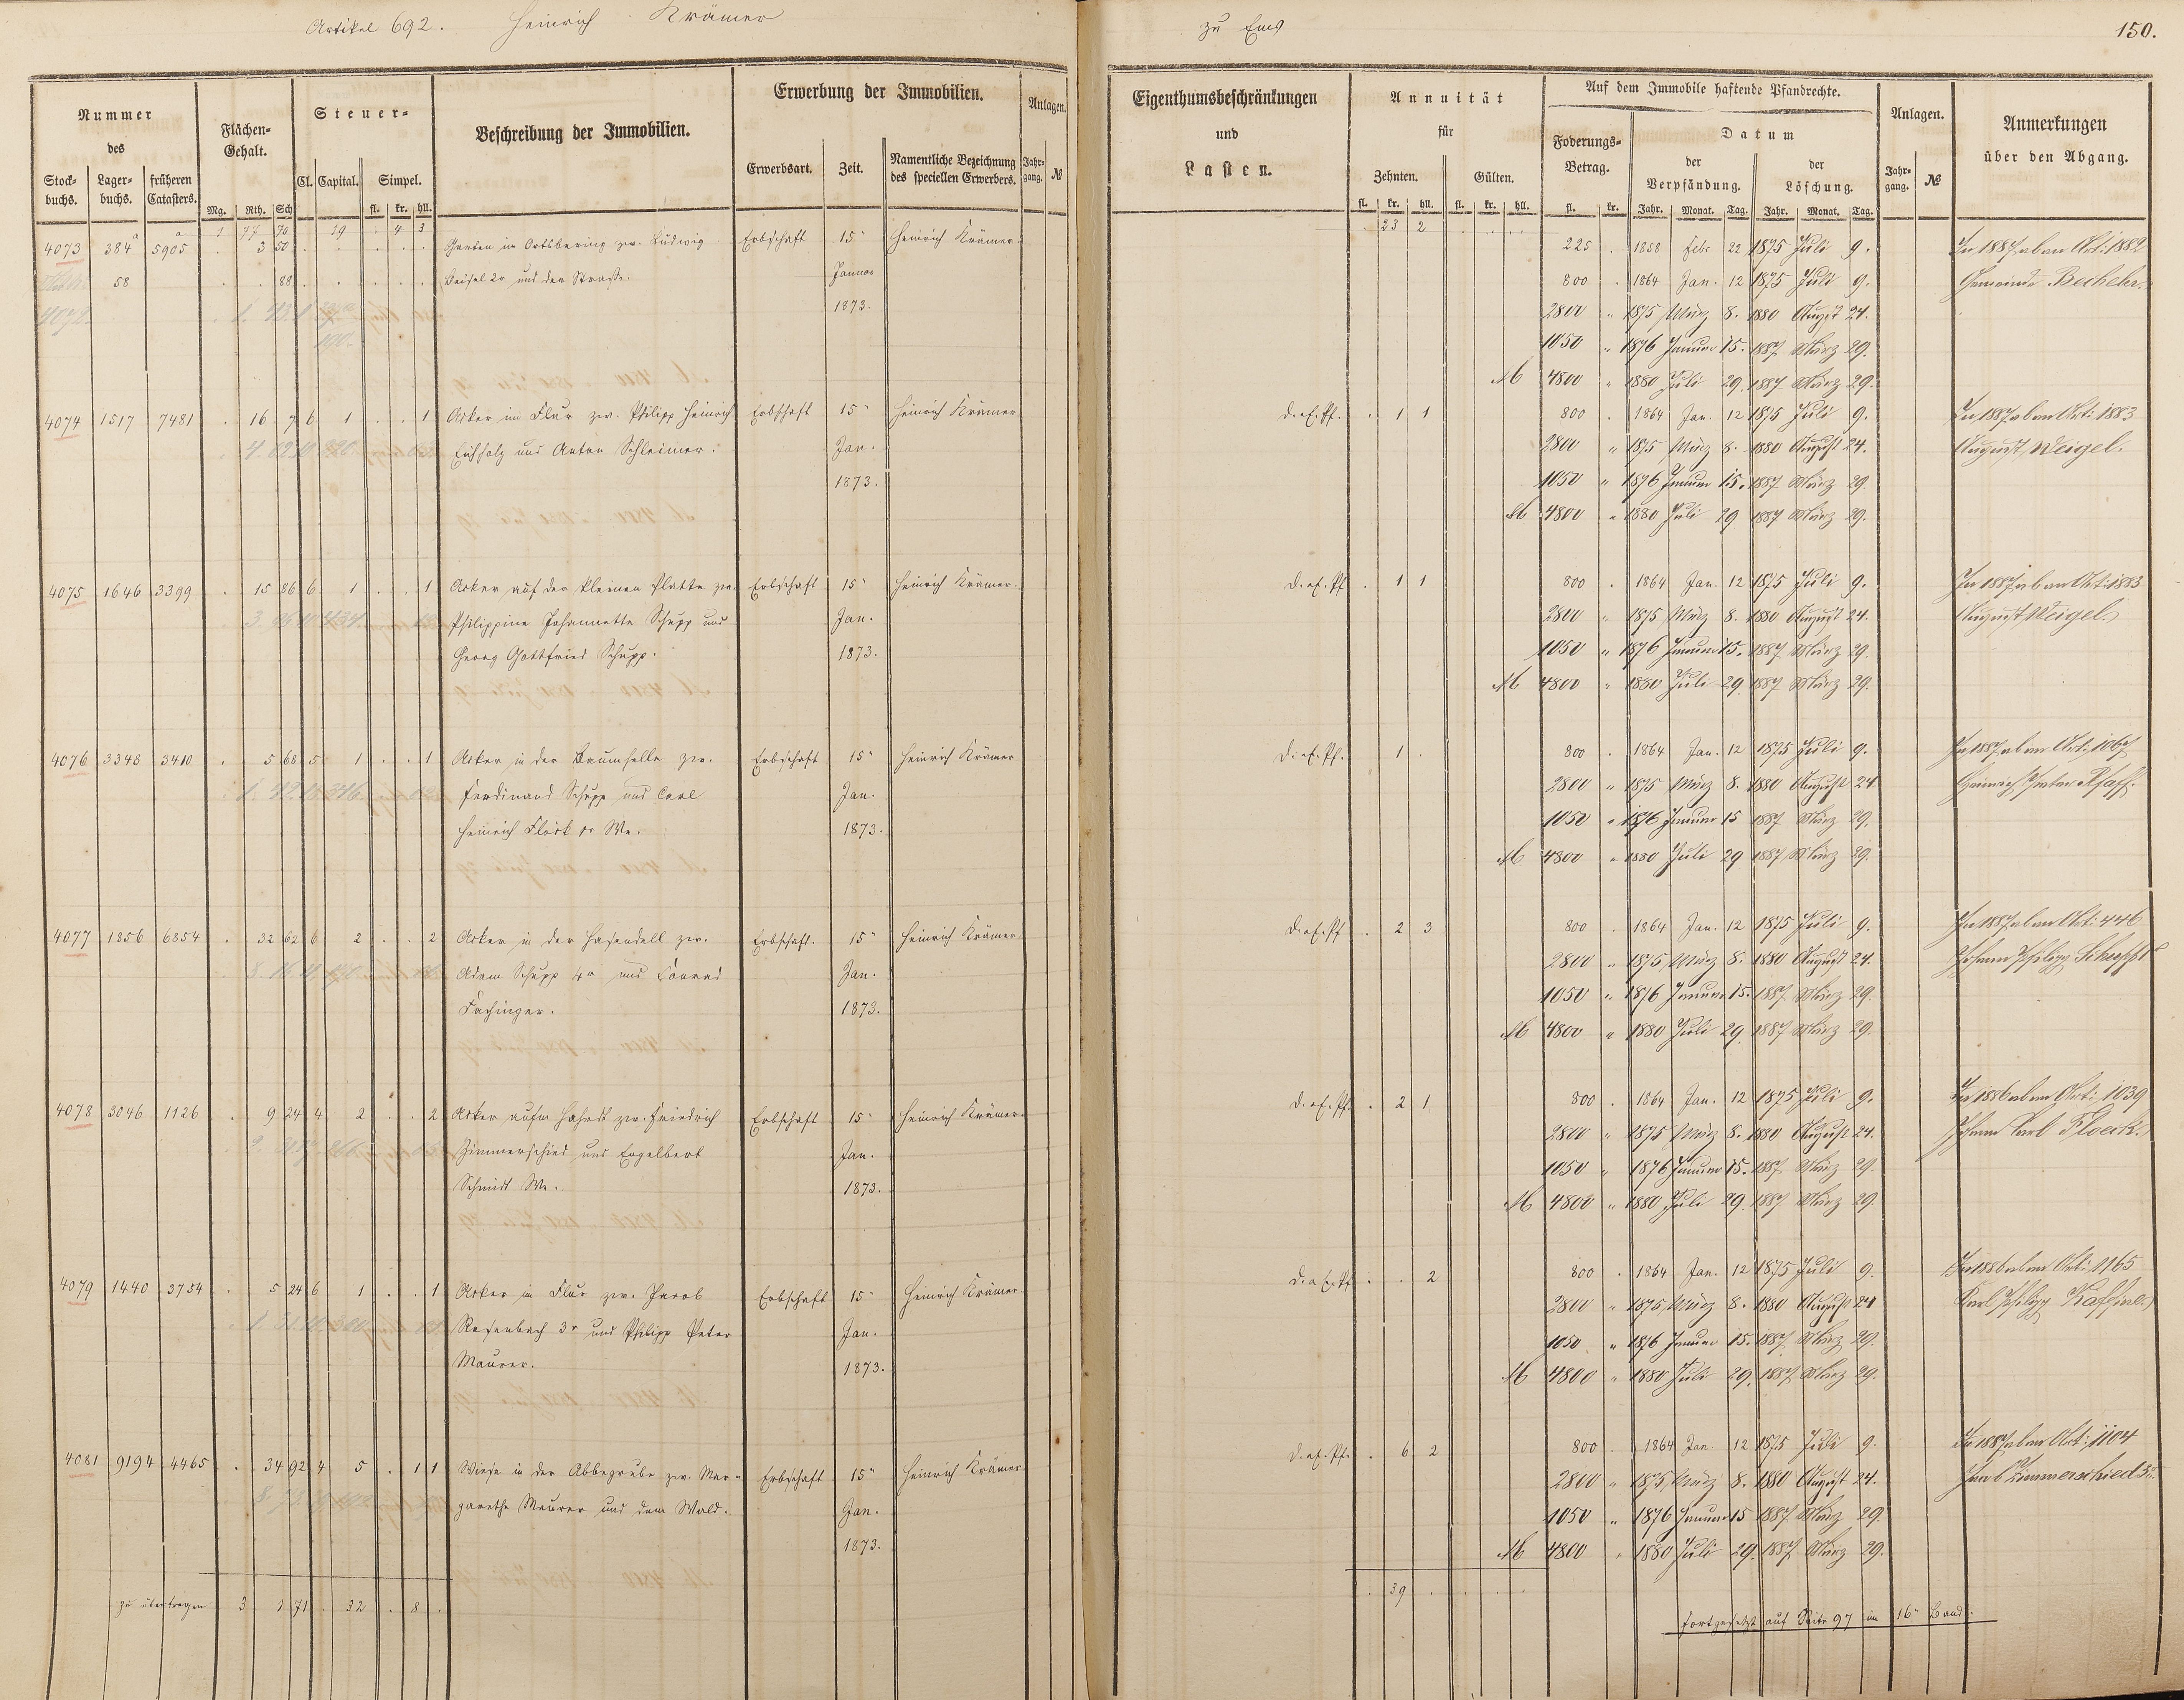 Artikel 692. Heinrich Krämer
zu Ems
150.
Nummer des
Stockbuchs. Lagerbuchs. früheren Catasters.
Flächen-Gehalt.
Mg. Rth. Sch
Steuer-
Cl. Capital. Simpel.
fl. kr. hll.
Beschreibung der Immobilien.
Erwerbung der Immobilien.
Erwerbsart. Zeit. Namentliche Bezeichnung des speciellen Erwerbers.
Anlagen.
Jahrgang. №
Eigenthumsbeschränkungen und Lasten.
Annuität für
Zehnten. Gülten.
fl. kr. hll. fl. kr. hll.
Auf dem Immobile haftende Pfandrechte.
Foderungs-Betrag.
fl. kr.
Datum
der Verpfändung. der Löschung.
Jahr. Monat. Tag. Jahr. Monat. Tag.
Anlagen.
Jahrgang. №
Anmerkungen über den Abgang.
1 77 70 19 . 4 3
23 2
4073 384a 5905 . 3 50 Garten im Ortsbering zw. Ludwig Erbschaft 15n Heinrich Krämer.
58 . . 88 Beisel 2r und der Straße. Januar
1873.
225 . 1858 Febr 22 1875 Juli 9. In 1887 ab an Art: 1882
800 . 1864 Jan. 12 1875 Juli 9. Gemeinde
2800 " 1875 März 8. 1880 August 24.
1050 " 1876 Januar 15. 1887 März 29.
M 4800 " 1880 Juli 29. 1887 März 29.
4074 1517 7481 . 16 7 6 1 . . 1 Acker im Flur zw. Philipp Heinrich Erbschaft 15n Heinrich Krämer
Eichholz und Anton Schleimer. Jan.
1873.
d. a. E. Pf. . 1 1 800 . 1864 Jan. 12 1875 Juli 9. In 1887 ab an Art: 1883
2800 " 1875 März 8. 1880 August 24. August Weigel.
1050 " 1876 Januar 15. 1887 März 29.
M 4800 " 1880 Juli 29 1887 März 29.
4075 1646 3399 . 15 86 6 1 . . 1 Acker auf der kleinen Platte zw. Erbschaft 15n Heinrich Krämer.
Philippine Johannette Schupp und Jan.
Georg Gottfried Schupp. 1873.
d. a. E. Pf . 1 1 800 . 1864 Jan. 12 1875 Juli 9. In 1887 ab an Art: 1883
2800 " 1875 März 8. 1880 August 24. August Weigel.
1050 " 1876 Januar 15. 1887 März 29.
M 4800 " 1880 Juli 29. 1887 März 29.
4076 3348 3410 . 5 68 5 1 . . 1 Acker in der Baumhelle zw. Erbschaft 15n Heinrich Krämer
Ferdinand Schupp und Carl Jan.
Heinrich Flöck 1r We. 1873.
d. a. E. Pf. . 1 . 800 . 1864 Jan. 12 1875 Juli 9. In 1887 ab an Art: 1067
2800 " 1875 März 8. 1880 August 24 Heinrich Anton Pfaff.
1050 " 1876 Januar 15 1887 März 29.
M 4800 " 1880 Juli 29 1887 März 29.
4077 1856 6854 . 32 62 6 2 . . 2 Acker in der Hasendell zw. Erbschaft. 15n Heinrich Krämer.
Adam Schupp 4r und Konrad Jan.
Fachinger. 1873.
d. a. E. Pf . 2 3 800 . 1864 Jan. 12 1875 Juli 9. In 1887 ab an Art: 446
2800 " 1875 März 8. 1880 August 24. Johann Philipp
1050 " 1876 Januar 15. 1887 März 29.
M 4800 " 1880 Juli 29. 1887 März 29.
4078 3046 1126 . 9 24 4 2 . . 2 Acker aufm Hahnst zw. Friedrich Erbschaft 15n Heinrich Krämer.
Zimmerschied und Engelbert Jan.
Schmidt We. 1873.
d. a. E. Pf. . 2 1 800 . 1864 Jan. 12 1875 Juli 9. In 1886 ab an Art: 1039
2800 " 1875 März 8. 1880 August 24. Johann Karl Floeck.
1050 " 1876 Januar 15. 1887 März 29.
M 4800 " 1880 Juli 29. 1887 März 29.
4079 1440 3754 . 5 24 6 1 . . 1 Acker im Flur zw. Jacob Erbschaft 15n Heinrich Krämer.
Rosenbach 3r und Philipp Peter Jan.
Maurer. 1873.
d. a. E. Pf . . 2 800 . 1864 Jan. 12 1875 Juli 9. In 1886 ab an Art: 1165
2800 " 1875 März 8. 1880 August 24 Karl Philipp
1050 " 1876 Januar 15. 1887 März 29.
M 4800 " 1880 Juli 29. 1887 März 29.
4081 9194 4465 . 34 92 4 5 . 1 1 Wiese in der Abbegrube zw. Mar- Erbschaft 15n Heinrich Krämer
garethe Maurer und dem Wald. Jan.
1873.
d. a. E. Pf. . 6 2 800 . 1864 Jan. 12 1875 Juli 9. In 1887 ab an Art: 1104
2800 " 1875 März 8. 1880 August 24. Jacob Zimmerschied 3r.
1050 " 1876 Januar 15 1887 März 29.
M 4800 " 1880 Juli 29. 1887 März 29.
zu übertragen 3 1 71 . 32 . 8 .
. 39 .
Fortgesetzt auf Seite 97 im 16n Band.